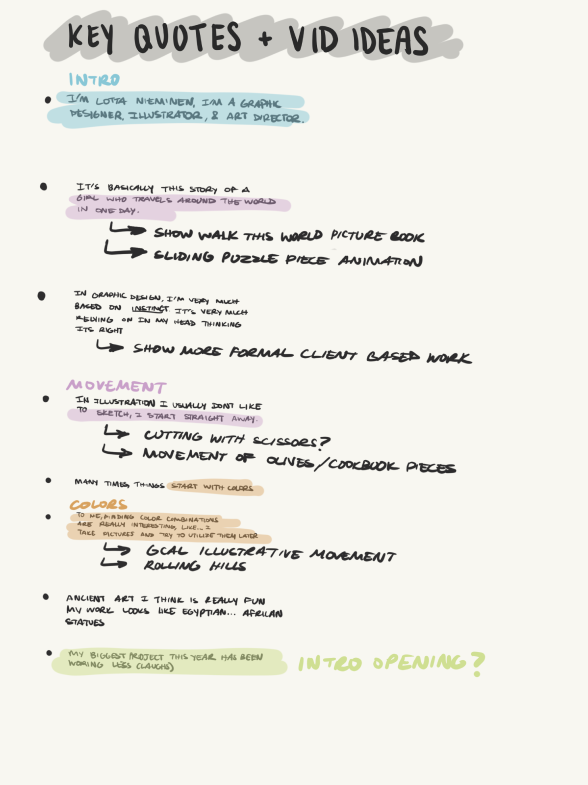 KEY QUOTES + VID IDEAS
INTRO
• I'M LOTTA NIEMINEN, I'M A GRAPHIC
DESIGNER, ILLUSTRATOR, & ART DIRECTOR.
• IT'S BASICALLY THIS STORY OF A
GIRL WHO TRAVELS AROUND THE WORLD
IN ONE DAY.
SHOW WALK THIS WORLD PICTURE BOOK
SLIDING PUZZLE PIECE ANIMATION
• IN GRAPHIC DESIGN, I'M VERY MUCH
BASED ON INSTINCT. IT'S VERY MUCH
RELYING ON IN MY HEAD THINKING
ITS RIGHT
SHOW MORE FORMAL CLIENT BASED WORK
MOVEMENT
• IN ILLUSTRATION I USUALLY DON'T LIKE
TO SKETCH, I START STRAIGHT AWAY.
CUTTING WITH SCISSORS?
MOVEMENT OF OLIVES/COOKBOOK PIECES
• MANY TIMES THINGS START WITH COLORS
COLORS
• TO ME, FINDING COLOR COMBINATIONS
ARE REALLY INTERESTING, LIKE... I
TAKE PICTURES AND TRY TO UTILIZE THEM LATER
GCAL ILLUSTRATIVE MOVEMENT
ROLLING HILLS
• ANCIENT ART I THINK IS REALLY FUN
MY WORK LOOKS LIKE EGYPTIAN... AFRICAN
STATUES
• MY BIGGEST PROJECT THIS YEAR HAS BEEN
WORING LESS (LAUGHS)
INTRO OPENING?